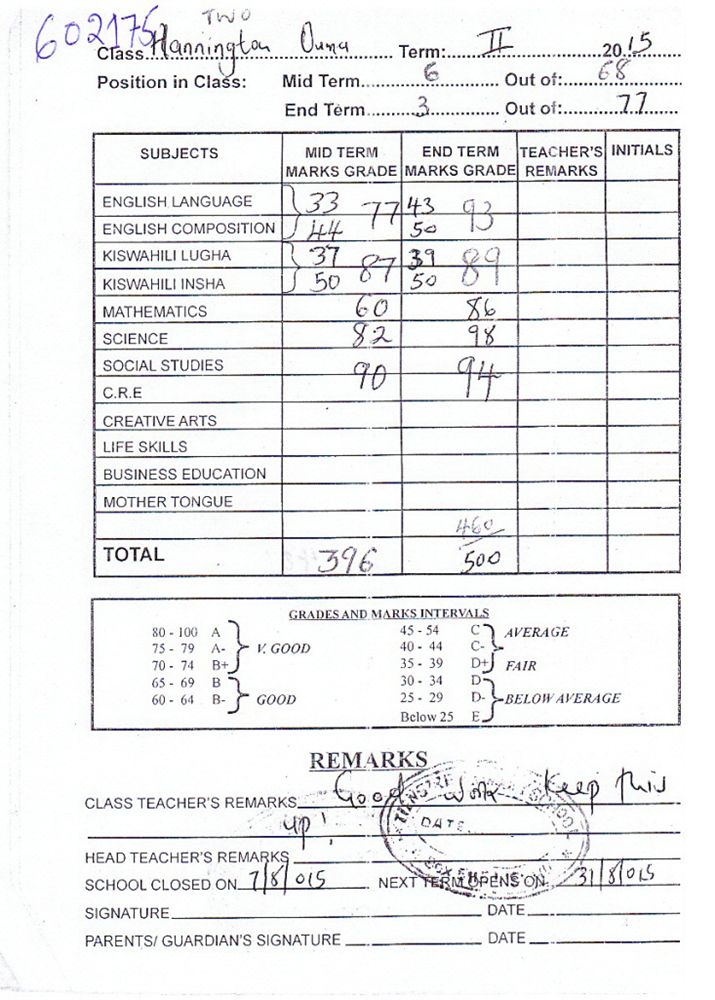 602175
TWO
Class Hannington Ouma Term: II 2015
Position in Class: Mid Term 6 Out of: 68
End Term 3 Out of: 77
SUBJECTS MID TERM MARKS GRADE END TERM MARKS GRADE TEACHER'S REMARKS INITIALS
ENGLISH LANGUAGE 33 77 43 93
ENGLISH COMPOSITION 44 50
KISWAHILI LUGHA 37 87 39 89
KISWAHILI INSHA 50 50
MATHEMATICS 60 86
SCIENCE 82 98
SOCIAL STUDIES 90 94
C.R.E
CREATIVE ARTS
LIFE SKILLS
BUSINESS EDUCATION
MOTHER TONGUE
460
TOTAL 396 500
GRADES AND MARKS INTERVALS
80 - 100 A 45 - 54 C AVERAGE
75 - 79 A- V. GOOD 40 - 44 C-
70 - 74 B+ 35 - 39 D+ FAIR
65 - 69 B 30 - 34 D
60 - 64 B- GOOD 25 - 29 D- BELOW AVERAGE
Below 25 E
REMARKS
CLASS TEACHER'S REMARKS Good Work Keep this
up!
DATE
HEAD TEACHER'S REMARKS
SCHOOL CLOSED ON 7/8/015 NEXT TERM OPENS ON 31/8/015
SIGNATURE DATE
PARENTS/ GUARDIAN'S SIGNATURE DATE